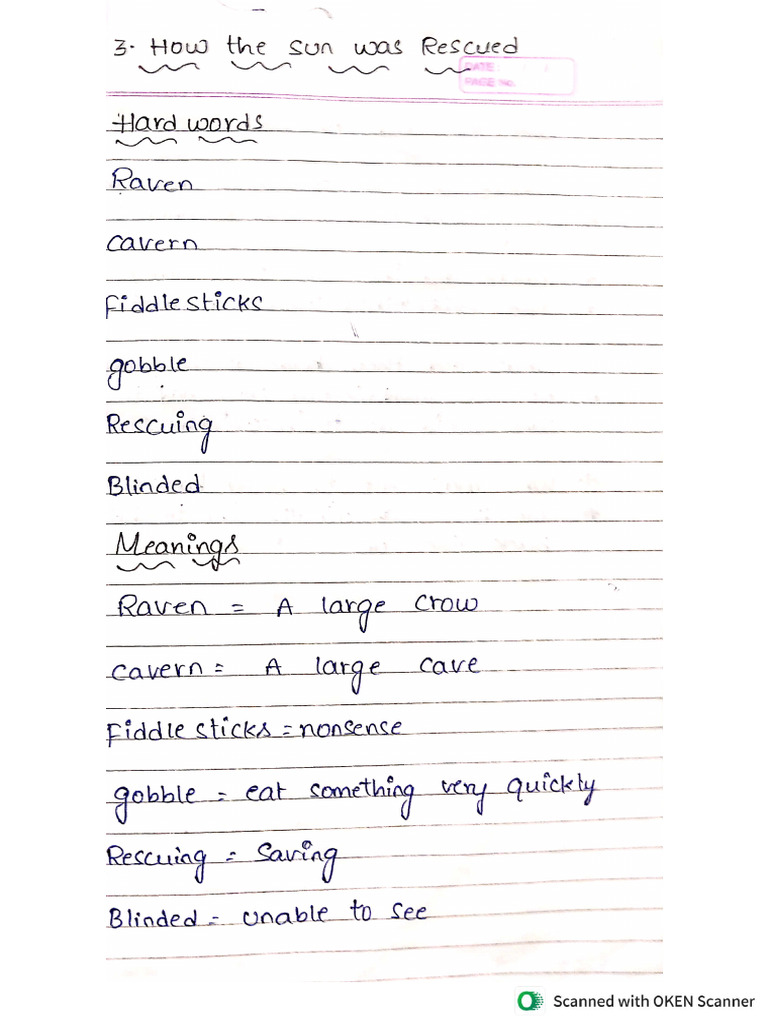 3. How the sun was Rescued
DATE:
PAGE No.
Hard words
Raven
cavern
Fiddle sticks
gobble
Rescuing
Blinded
Meanings
Raven = A large crow
cavern = A large cave
Fiddle sticks = nonsense
gobble = eat something very quickly
Rescuing = saving
Blinded = unable to see
Scanned with OKEN Scanner